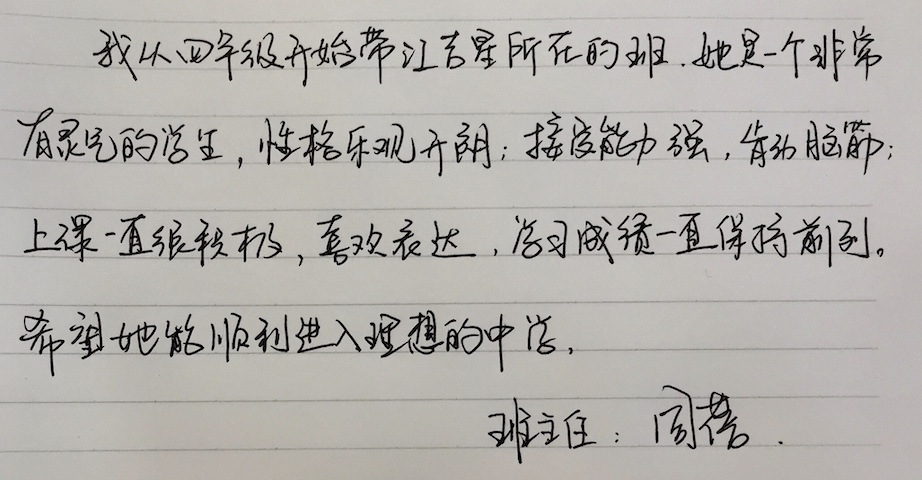 我从四年级开始带江吉星所在的班.她是一个非常
有灵气的学生，性格乐观开朗；接受能力强，肯动脑筋；
上课一直很积极，喜欢表达，学习成绩一直保持前列。
希望她能顺利进入理想的中学.
班主任：周蓓.